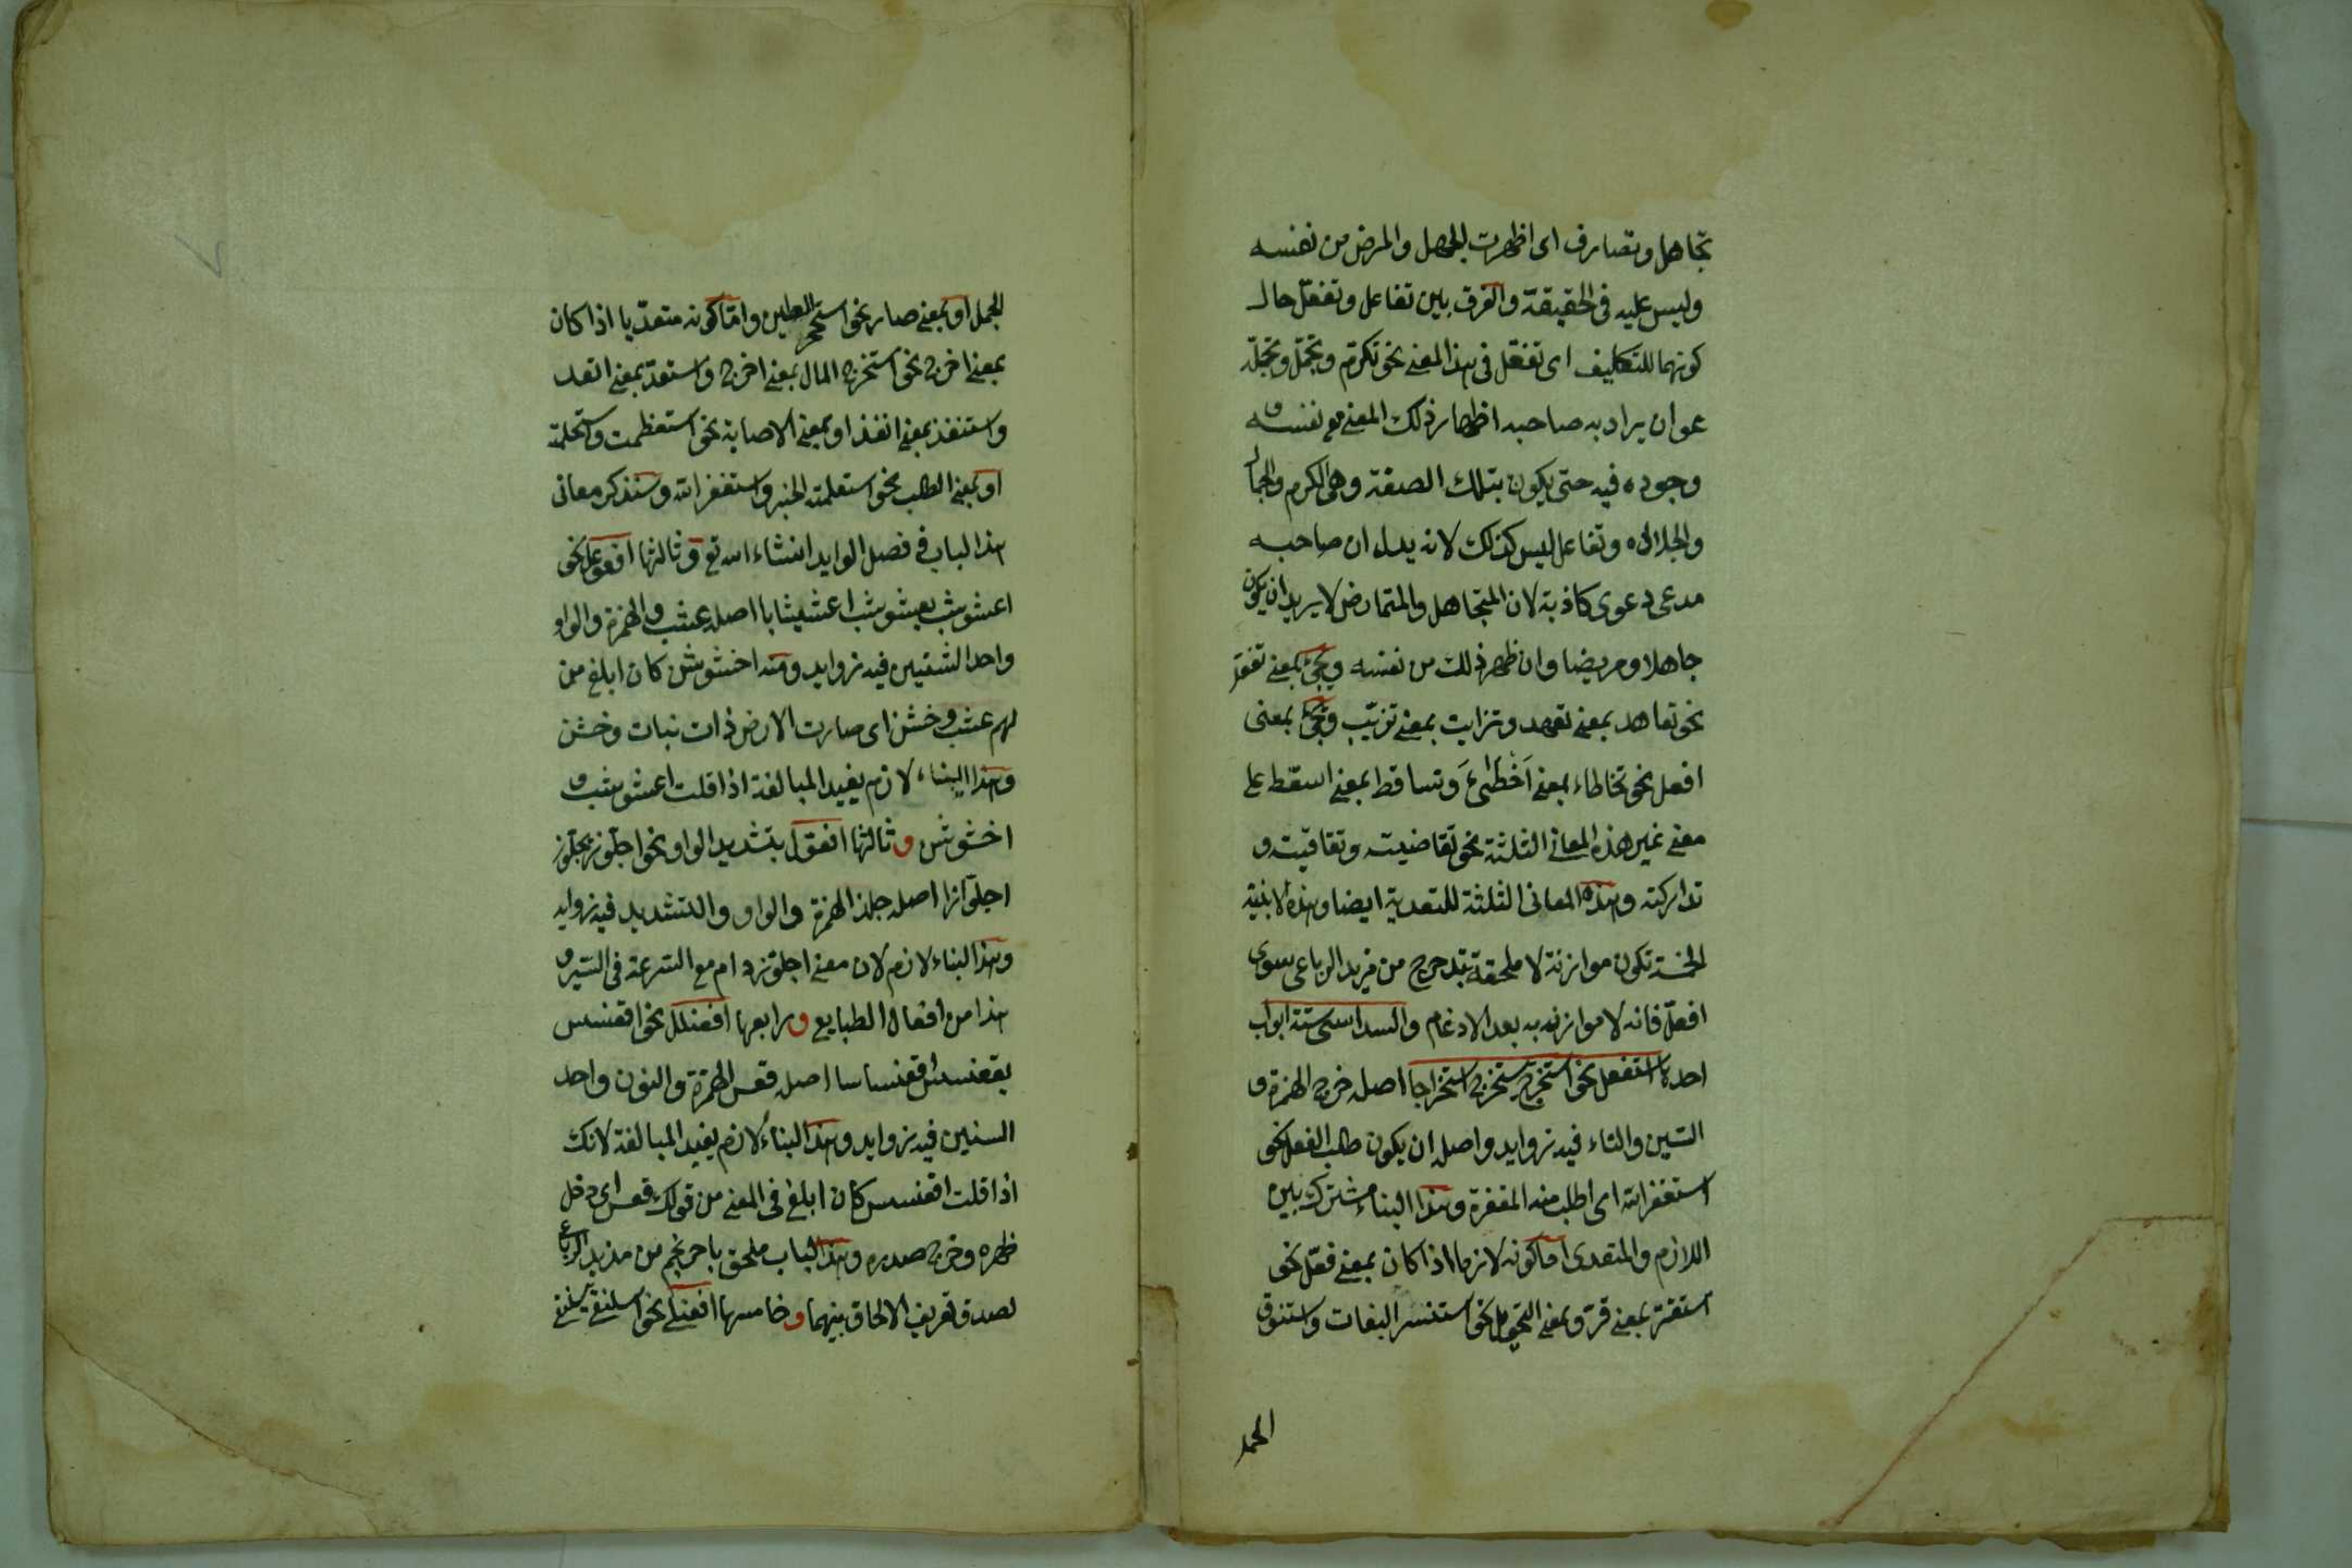 تجاهل وتصارف اى اظهرت الجهل والمرض من نفسه
وليس عليه فى الحقيقة والفرق بين تفاعل وتفعّل حال
كونهما للتكليف اى تفعّل فى هذا المعنى نحو تكرّم وتجمّل وتجلّد
هو ان يراد به صاحبه اظهار ذلك المعنى مع نفسه و
وجوده فيه حتى يكون بتلك الصفة وهى الكرم والجمال
والجلاله وتفاعل ليس كذلك لانه يدل ان صاحبه
مدعى دعوى كاذبة لان المتجاهل والمتمارض لا يريد ان يكون
جاهلا ومريضا وان ظهر ذلك من نفسه ويجئ بمعنى تفعّل
نحو تعاهد بمعنى تعهد وتزايت بمعنى تزيّب ويجئ بمعنى
افعل نحو تخاطاء بمعنى اَخْطَئَ وتساقط بمعنى اسقط على
معنى غير هذه المعانى الثلثة نحو تقاضيت وتقاقيت و
تداركته وهذه المعانى الثلثة للتعدية ايضا وهذه الابنية
الخمسة تكون موازنة لا ملحقة بتدحرج من مزيد الرباعى سوى
افعلّ فانه لا موازنه به بعد الادغام والسداسى ستة ابواب
احدها استفعل نحو استخرج يستخرج استخراجا اصله خرج الهمزة و
السّين والتاء فيه زوايد واصله ان يكون طلب الفعل نحو
استغفر الله اى اطلب منه المغفرة وهذا البناء مشترك بين
اللازم والمتعدى امّا كونه لازما اذا كان بمعنى فعّل نحو
استقرّ بمعنى قرّ وبمعنى التحوّل نحو استنسر البغات واستنوق
الجمل
الجمل او بمعنى صار نحو استحجر الطين وامّا كونه متعدّيا اذا كان
بمعنى اخرج نحو استخرج المال بمعنى اخرج واستعدّ بمعنى اتعد
واستنفذ بمعنى انفذ او بمعنى الاصابة نحو استعظمت واستحلمته
او بمعنى الطلب نحو استعلمته الخبر واستغفر الله وسنذكر معانى
هذا الباب فى فصل الوايد انشاء الله تع وثالثها افعوعل نحو
اعشوشب يعشوشب اعشيشابا اصله عشب والهمزة والواو
واحد الشينين فيه زوايد ومنه اخشوشن كان ابلغ من
لهم عشب وخشن اى صارت الارض ذات نبات وخشن
وهذا البناء لازم يفيد المبالغة اذا قلت اعشوشب و
اخشوشن وثالثها افعوّل بتشديد الواو نحو اجلوّز يجلوّز
اجلوّازا اصله جلذ الهمزة والواو والتشديد فيه زوايد
وهذا البناء لازم لان معنى اجلوّز دام مع السرعة فى السّير و
هذا من افعال الطبايع ورابعها افعنلل نحو اقعنسس
يقعنسس اقعنساسا اصله قعس الهمزة والنون واحد
السنين فيه زوايد وهذا البناءُ لازم يفيد المبالغة لانك
اذا قلت اقعنسس كان ابلغ فى المعنى من قولك قعس اى دخل
ظهره وخرج صدره وهذا الباب ملحق باحرنجم من مزيد الرباعى
لصدق تعريف الالحاق بينهما وخامسها افعنلى نحو اسلنقى يسلنقى